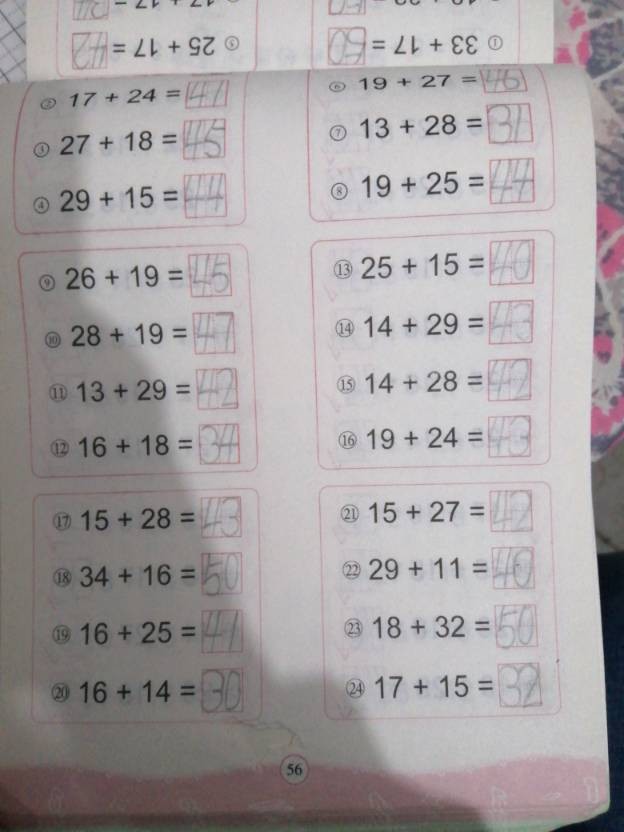 ① 33 + 17 = 50
⑤ 25 + 17 = 42
② 17 + 24 = 41
③ 27 + 18 = 45
④ 29 + 15 = 44
⑥ 19 + 27 = 46
⑦ 13 + 28 = 31
⑧ 19 + 25 = 44
⑨ 26 + 19 = 45
⑩ 28 + 19 = 47
⑪ 13 + 29 = 42
⑫ 16 + 18 = 34
⑬ 25 + 15 = 40
⑭ 14 + 29 = 43
⑮ 14 + 28 = 42
⑯ 19 + 24 = 43
⑰ 15 + 28 = 43
⑱ 34 + 16 = 50
⑲ 16 + 25 = 41
⑳ 16 + 14 = 30
㉑ 15 + 27 = 42
㉒ 29 + 11 = 40
㉓ 18 + 32 = 50
㉔ 17 + 15 = 32
56